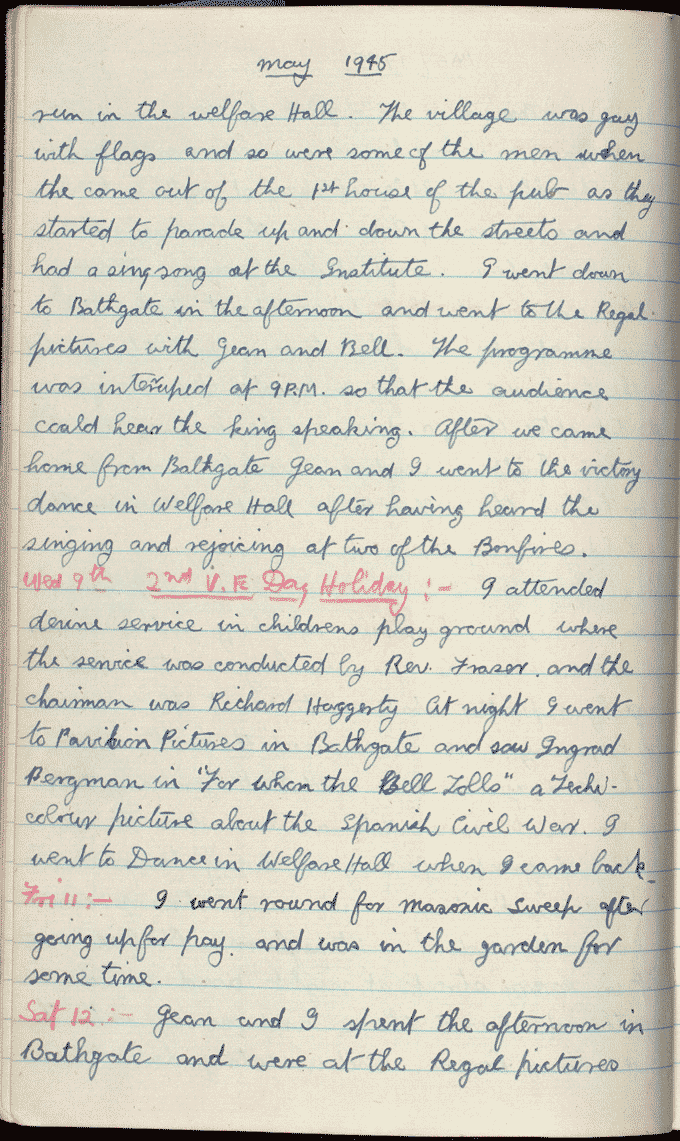 may 1945
run in the welfare Hall. The village was gay
with flags and so were some of the men when
the came out of the 1st house of the pub as they
started to parade up and down the streets and
had a sing song at the Institute. I went down
to Bathgate in the afternoon and went to the Regal
pictures with Gean and Bell. The programme
was interuped at 9 P.M. so that the audience
could hear the king speaking. After we came
home from Bathgate Gean and I went to the victory
dance in Welfare Hall after having heard the
singing and rejoicing at two of the Bonfires.
Wed 9th 2nd V.E Day Holiday :- I attended
devine service in childrens play ground where
the service was conducted by Rev. Fraser. and the
chairman was Richard Haggerty At night I went
to Pavilion Pictures in Bathgate and saw Ingrad
Bergman in "For whom the Bell Tolls" a Techi-
colour picture about the Spanish Civil War. I
went to Dance in Welfare Hall when I came back.
Fri 11 :- I went round for masonic sweep after
going up for pay. and was in the garden for
some time.
Sat 12 :- Gean and I spent the afternoon in
Bathgate and were at the Regal pictures